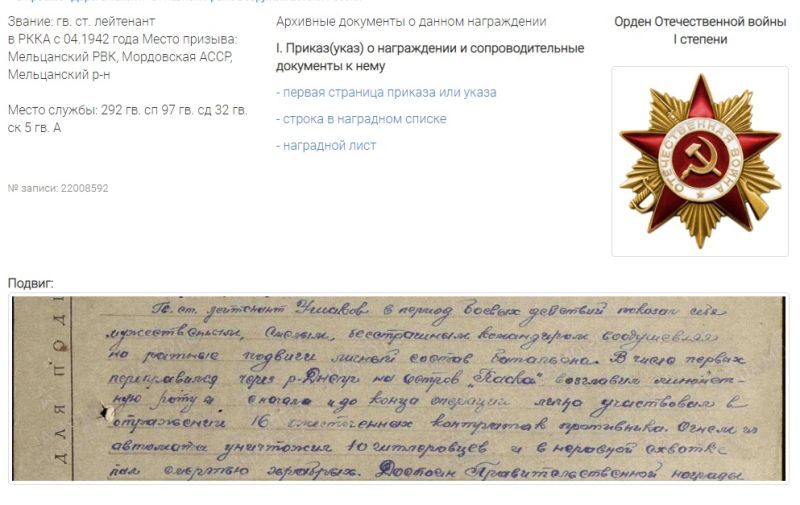 Звание: гв. ст. лейтенант
в РККА с 04.1942 года Место призыва:
Мельцанский РВК, Мордовская АССР,
Мельцанский р-н
Место службы: 292 гв. сп 97 гв. сд 32 гв.
ск 5 гв. А
№ записи: 22008592
Архивные документы о данном награждении
I. Приказ(указ) о награждении и сопроводительные
документы к нему
- первая страница приказа или указа
- строка в наградном списке
- наградной лист
Орден Отечественной войны
I степени
ОТЕЧЕСТВЕННАЯ ВОЙНА
Подвиг:
ДЛЯ ПОД
Гв. ст. лейтенант Ушаков в период боевых действий показал себя
мужественным, смелым, бесстрашным командиром воодушевляя
на ратные подвиги личный состав батальона. В числе первых
переправился через р-Днепр на остров "Паска" возглавил миномет-
ную роту и сначала и до конца операции лично участвовал в
отражений 16 ожесточенных контратак противника. Огнем из
автомата уничтожил 10 гитлеровцев и в неравной схватке
пал смертью храбрых. Достоин Правительственной награды